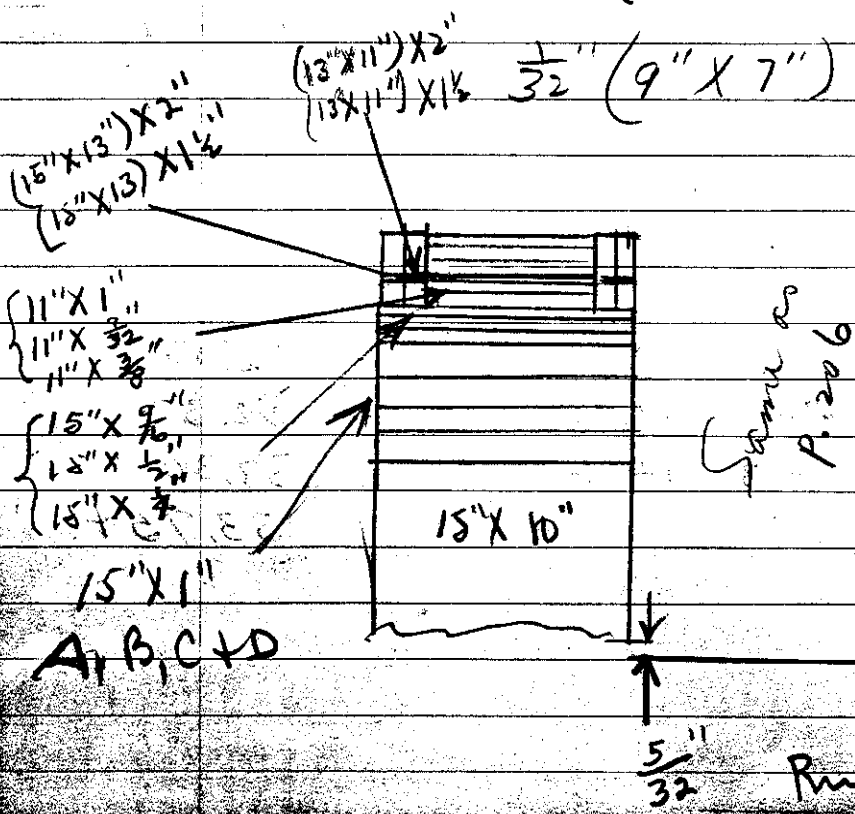 (13"X11")X2"
(13"X11")X1½
1/32" (9" X 7")
(15"X13")X2"
(15"X13)X1½"
11"X1"
11"X 3/32"
11"X 3/8"
15"X 9/16"
15"X 1/2"
15"X 1/4"
15"X1"
A, B, C + D
15"X 10"
Same as
P. 206
5/32"